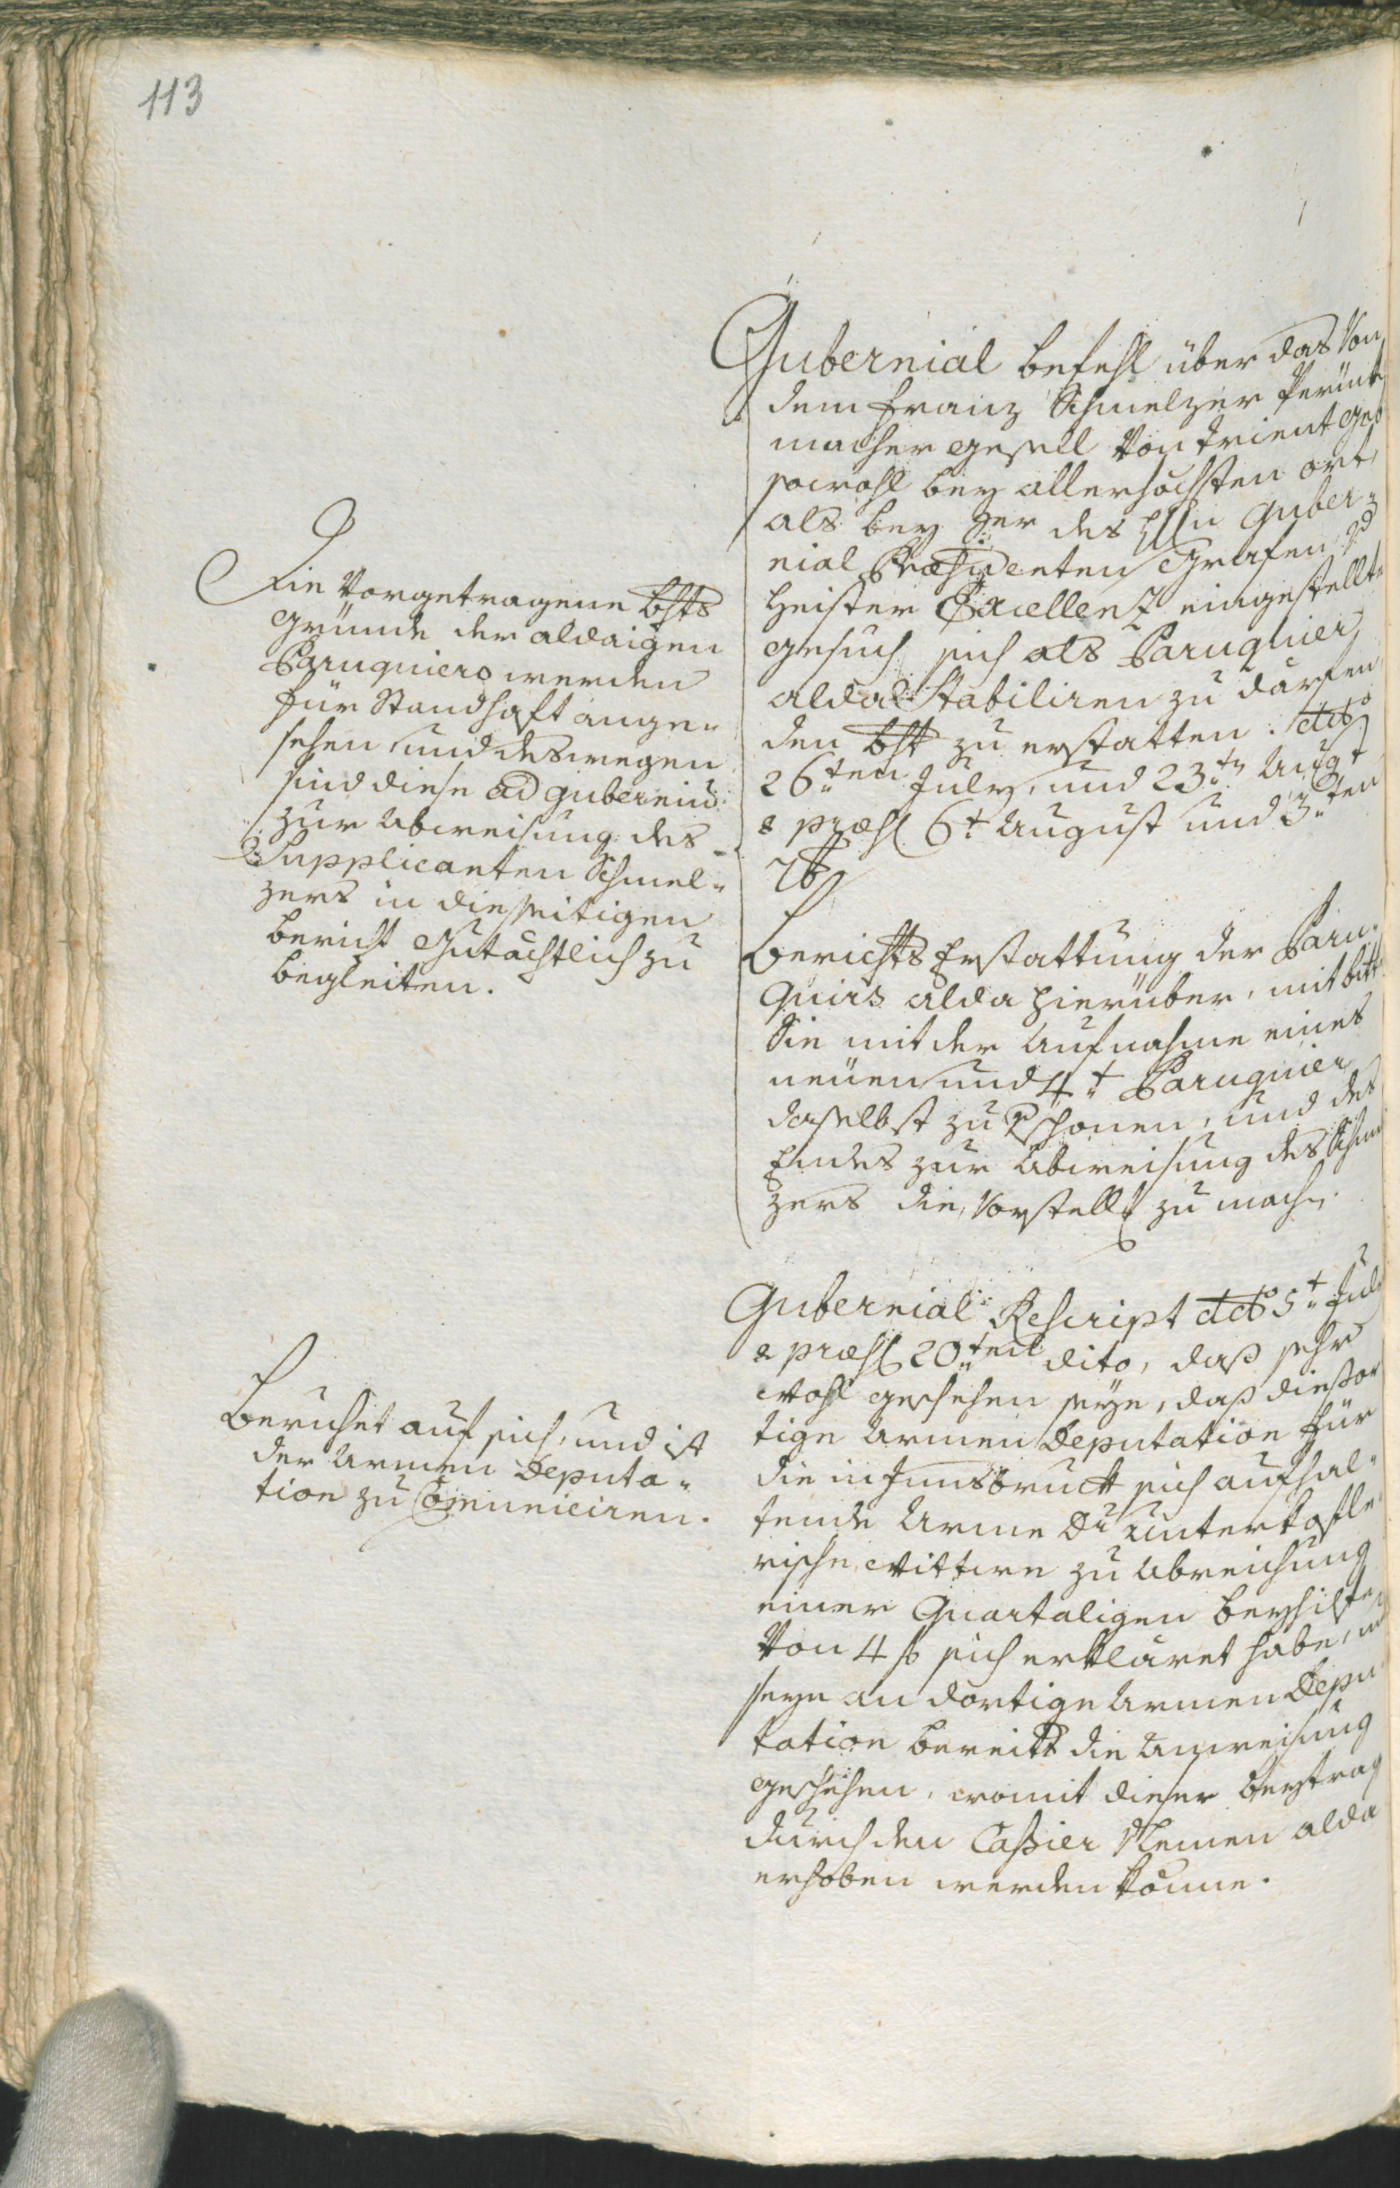 113
Gubernial befehl über das Von
dem Franz Schmelzer Perück
macher gesell Von Trient
sowohl bey allerhöchsten ort,
als bey Ihro des Hln Guber-
nial Præsidenten Grafen
Heister Excellenz eingestellte
gesuch sich als Paruquier
alda Stabiliren zu därfen
den bht zu erstatten. ddto
26ten July, und 23ten Augt
& præs 6t August und 3ten
7b
Berichts Erstattung der Paru-
quirs alda hierüber, mit bitt
Sie mit der Aufnahme eines
neüen und 4t Paruquier
daselbst zu Vschonen, und des
Endes zur Abweisung des Schmel
zers die Vorstellg zu machen.
Die Vorgetragene bhts
gründe der aldaigen
Paruquiers werden
für Standhaft ange-
sehen und deswegen
sind diese ad guberniu
zur Abweisung des
Supplicanten Schmel-
zers in diesseitigen
bericht gutächtlich zu
begleiten.
Gubernial Rescript ddto 5t July
& præs 20ten dito, daß sehr
wohl geschehen seye, daß dießor
tige Armen Deputation für
die in Innsbruck sich aufhal-
tende Arme Unterkofle
rische Wittwe zu Abreichung
einer Quartaligen beyhilfe
Von 4 f sich erkläret habe,
seye an dortige Armen Depu
tation bereits die Anweisung
geschehen, womit dieser beytrag
durch den Cassier Klemen alda
erhoben werden könne.
Beruhet auf sich, und ist
der Armen Deputa-
tion zu Comuniciren.